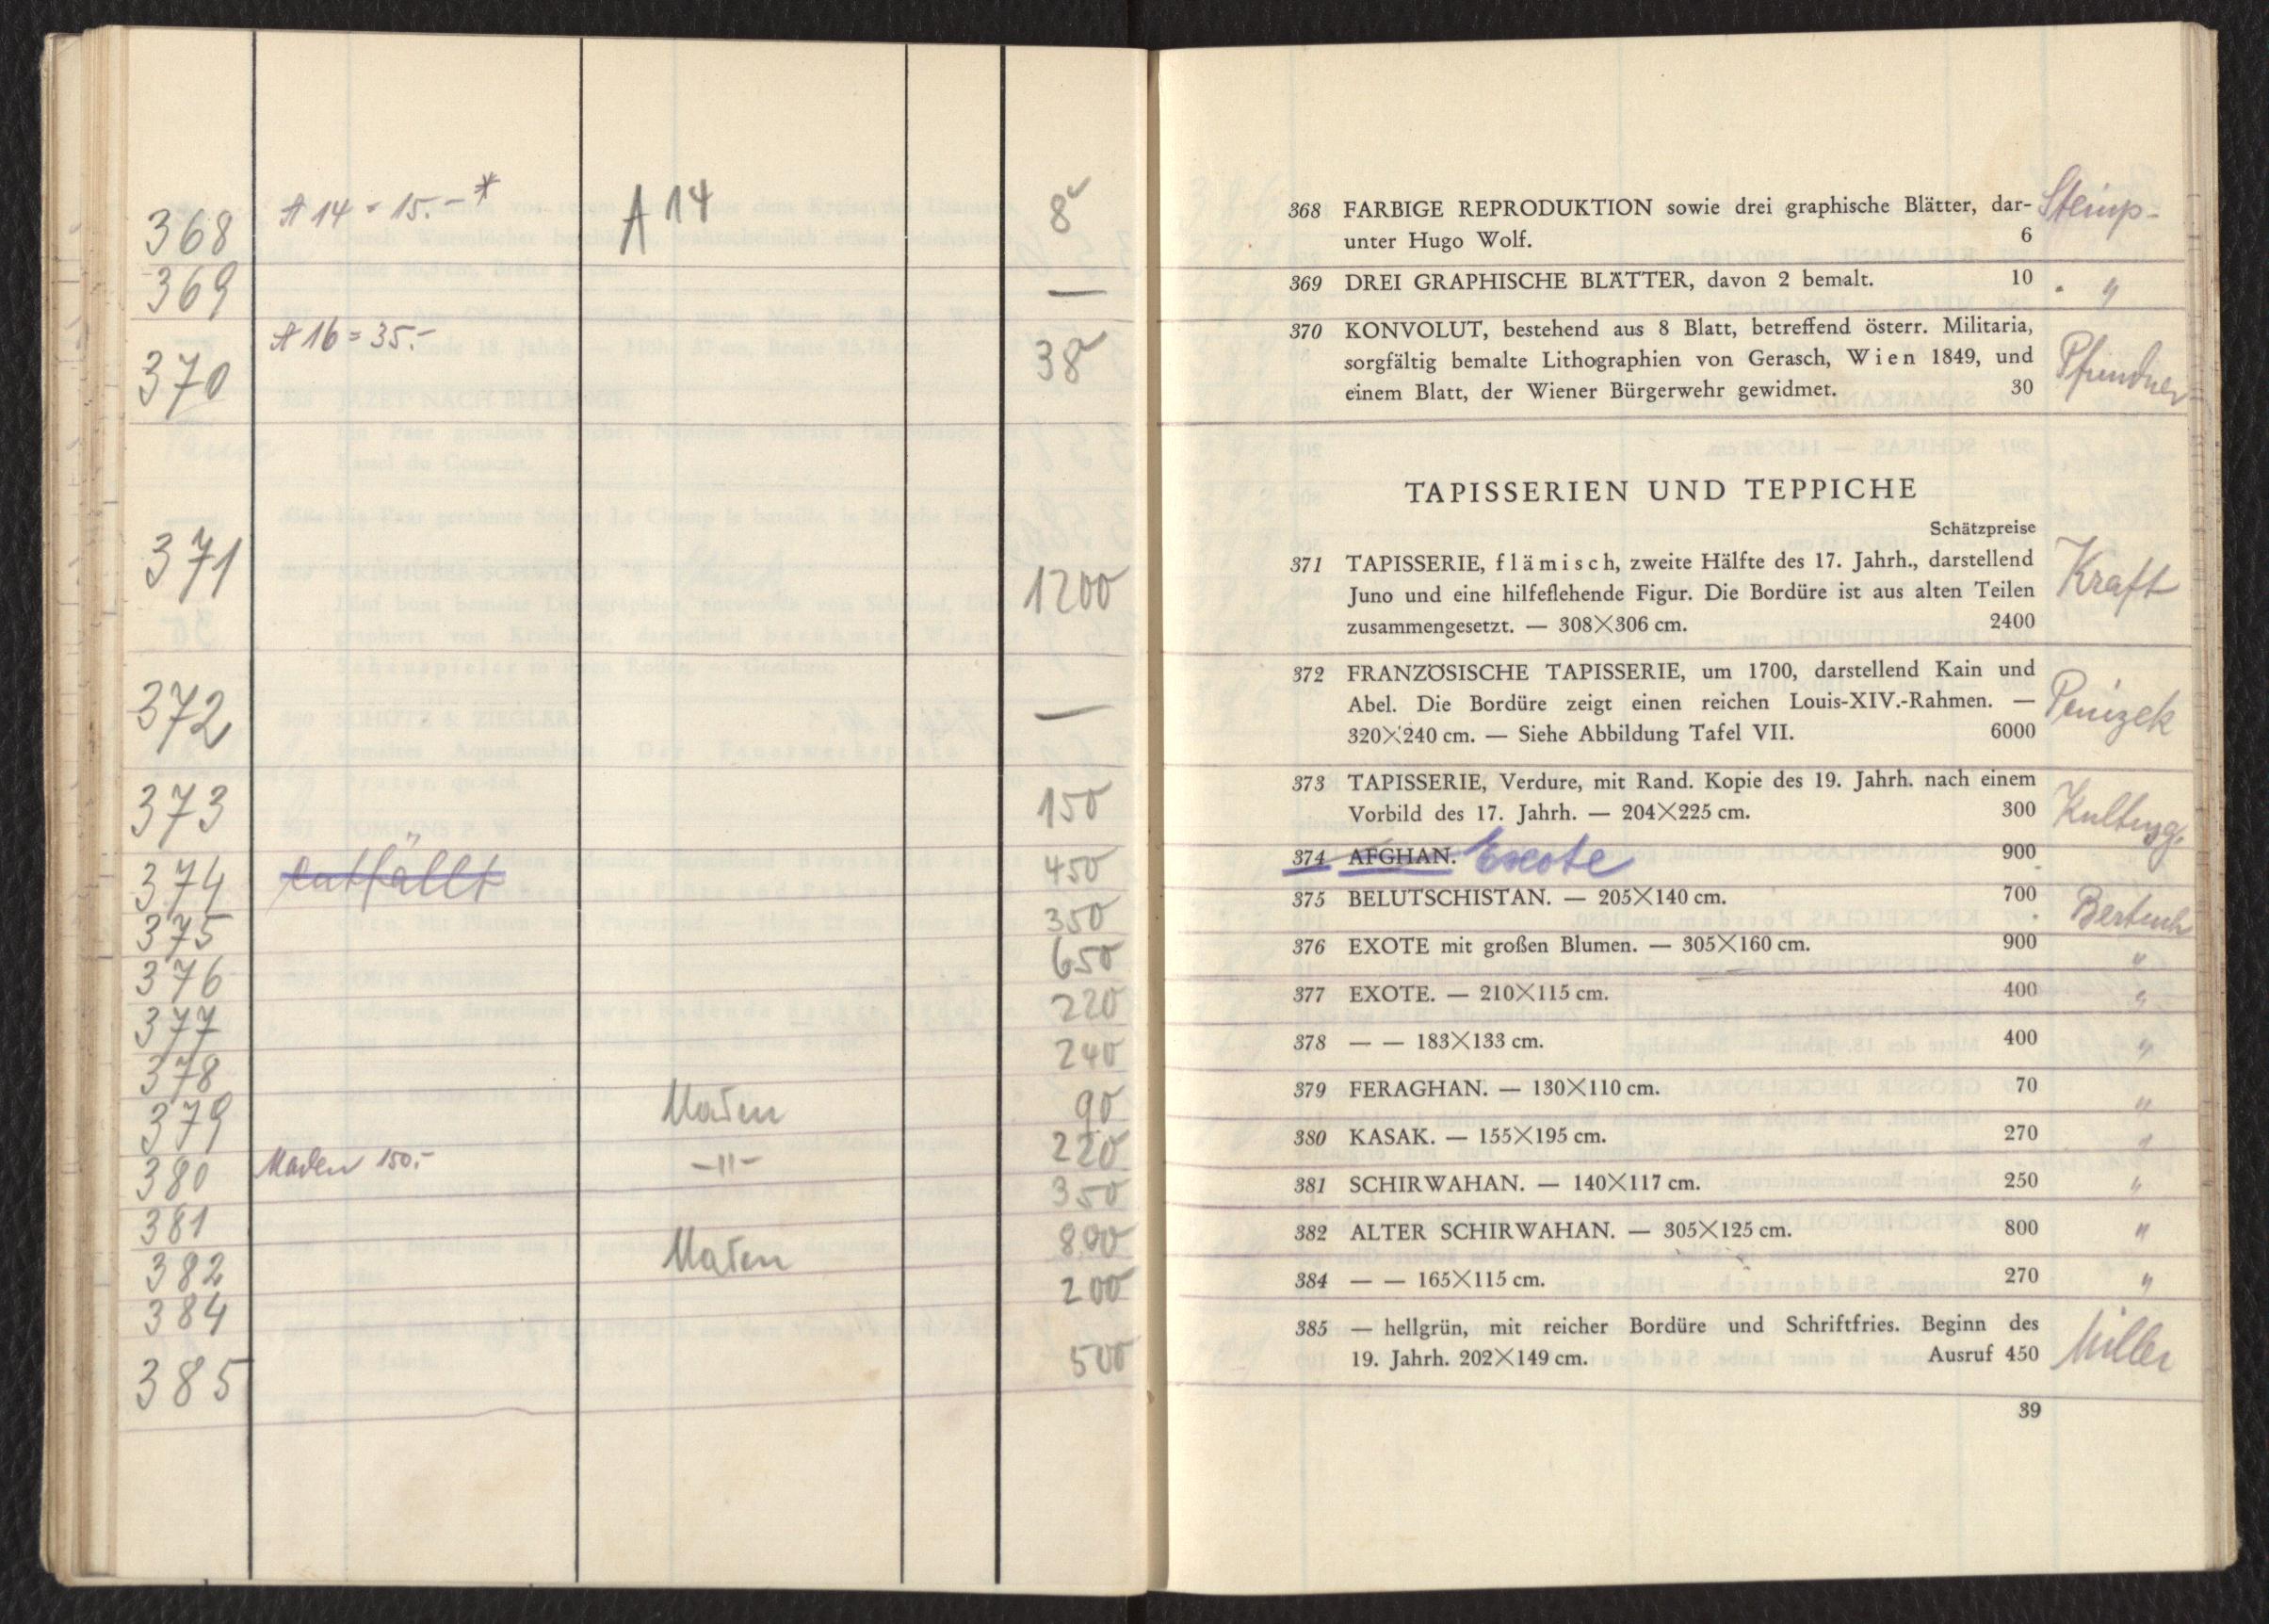 368 A 14 = 15.- * A 14 8
369 —
370 A 16 = 35.- 38
371 1200
372 —
373 150
374 entfällt 450
375 350
376 650
377 220
378 240
379 Maten 90
380 Maden 150.- -"- 220
381 350
382 Maten 800
384 200
385 500
368 FARBIGE REPRODUKTION sowie drei graphische Blätter, dar-
unter Hugo Wolf. 6
369 DREI GRAPHISCHE BLÄTTER, davon 2 bemalt. 10 "
370 KONVOLUT, bestehend aus 8 Blatt, betreffend österr. Militaria,
sorgfältig bemalte Lithographien von Gerasch, Wien 1849, und
einem Blatt, der Wiener Bürgerwehr gewidmet. 30
TAPISSERIEN UND TEPPICHE
Schätzpreise
371 TAPISSERIE, flämisch, zweite Hälfte des 17. Jahrh., darstellend Kraft
Juno und eine hilfeflehende Figur. Die Bordüre ist aus alten Teilen
zusammengesetzt. — 308×306 cm. 2400
372 FRANZÖSISCHE TAPISSERIE, um 1700, darstellend Kain und
Abel. Die Bordüre zeigt einen reichen Louis-XIV.-Rahmen. —
320×240 cm. — Siehe Abbildung Tafel VII. 6000
373 TAPISSERIE, Verdure, mit Rand. Kopie des 19. Jahrh. nach einem
Vorbild des 17. Jahrh. — 204×225 cm. 300
374 AFGHAN. Exote 900
375 BELUTSCHISTAN. — 205×140 cm. 700
376 EXOTE mit großen Blumen. — 305×160 cm. 900 "
377 EXOTE. — 210×115 cm. 400 "
378 — — 183×133 cm. 400 "
379 FERAGHAN. — 130×110 cm. 70 "
380 KASAK. — 155×195 cm. 270 "
381 SCHIRWAHAN. — 140×117 cm. 250 "
382 ALTER SCHIRWAHAN. — 305×125 cm. 800 "
384 — — 165×115 cm. 270 "
385 — hellgrün, mit reicher Bordüre und Schriftfries. Beginn des Miller
19. Jahrh. 202×149 cm. Ausruf 450
39